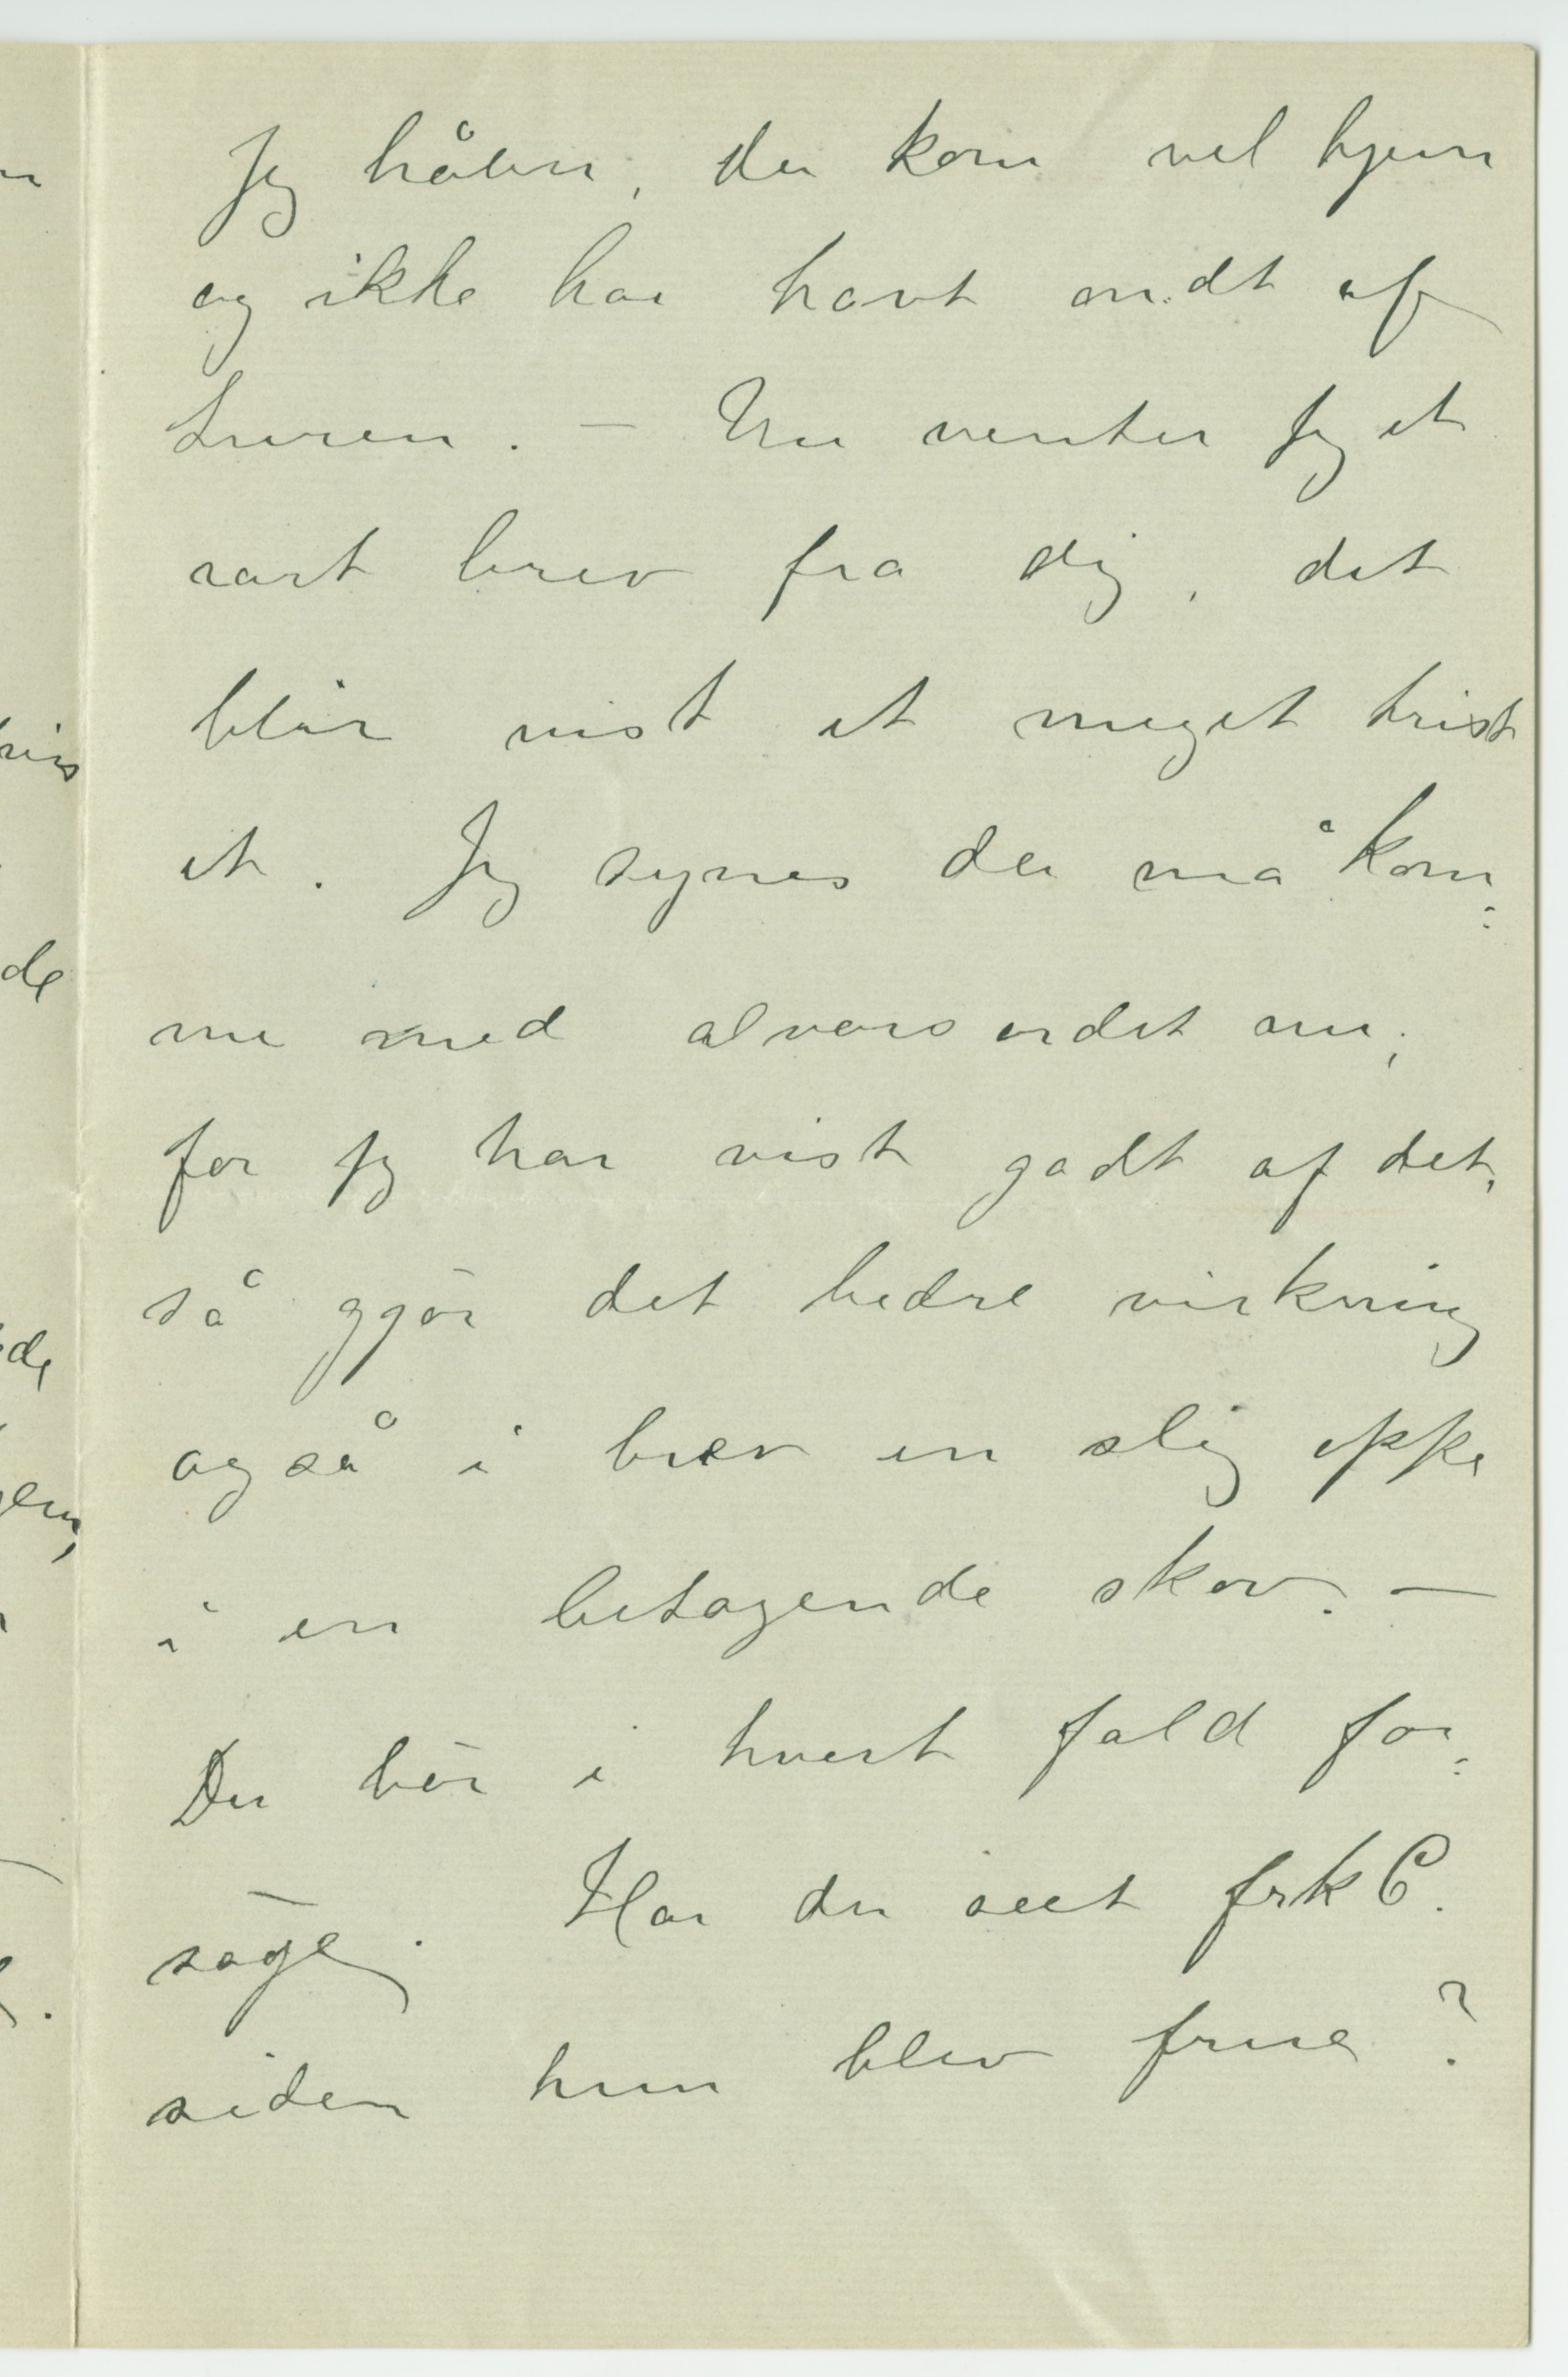 Jeg håber, du kom vel hjem
og ikke har havt ondt af
turen. – Nu venter jeg et
rart brev fra dig, det
blir vist et meget trist
et. Jeg synes du må kom-
me med alvorsordet nu;
for jeg har vist godt af det,
så gjør det bedre virkning
også i brev en slig
i en betagende skov. –
Du bör i hvert fald for-
söge. Har du seet frk C.
siden hun blev frue?